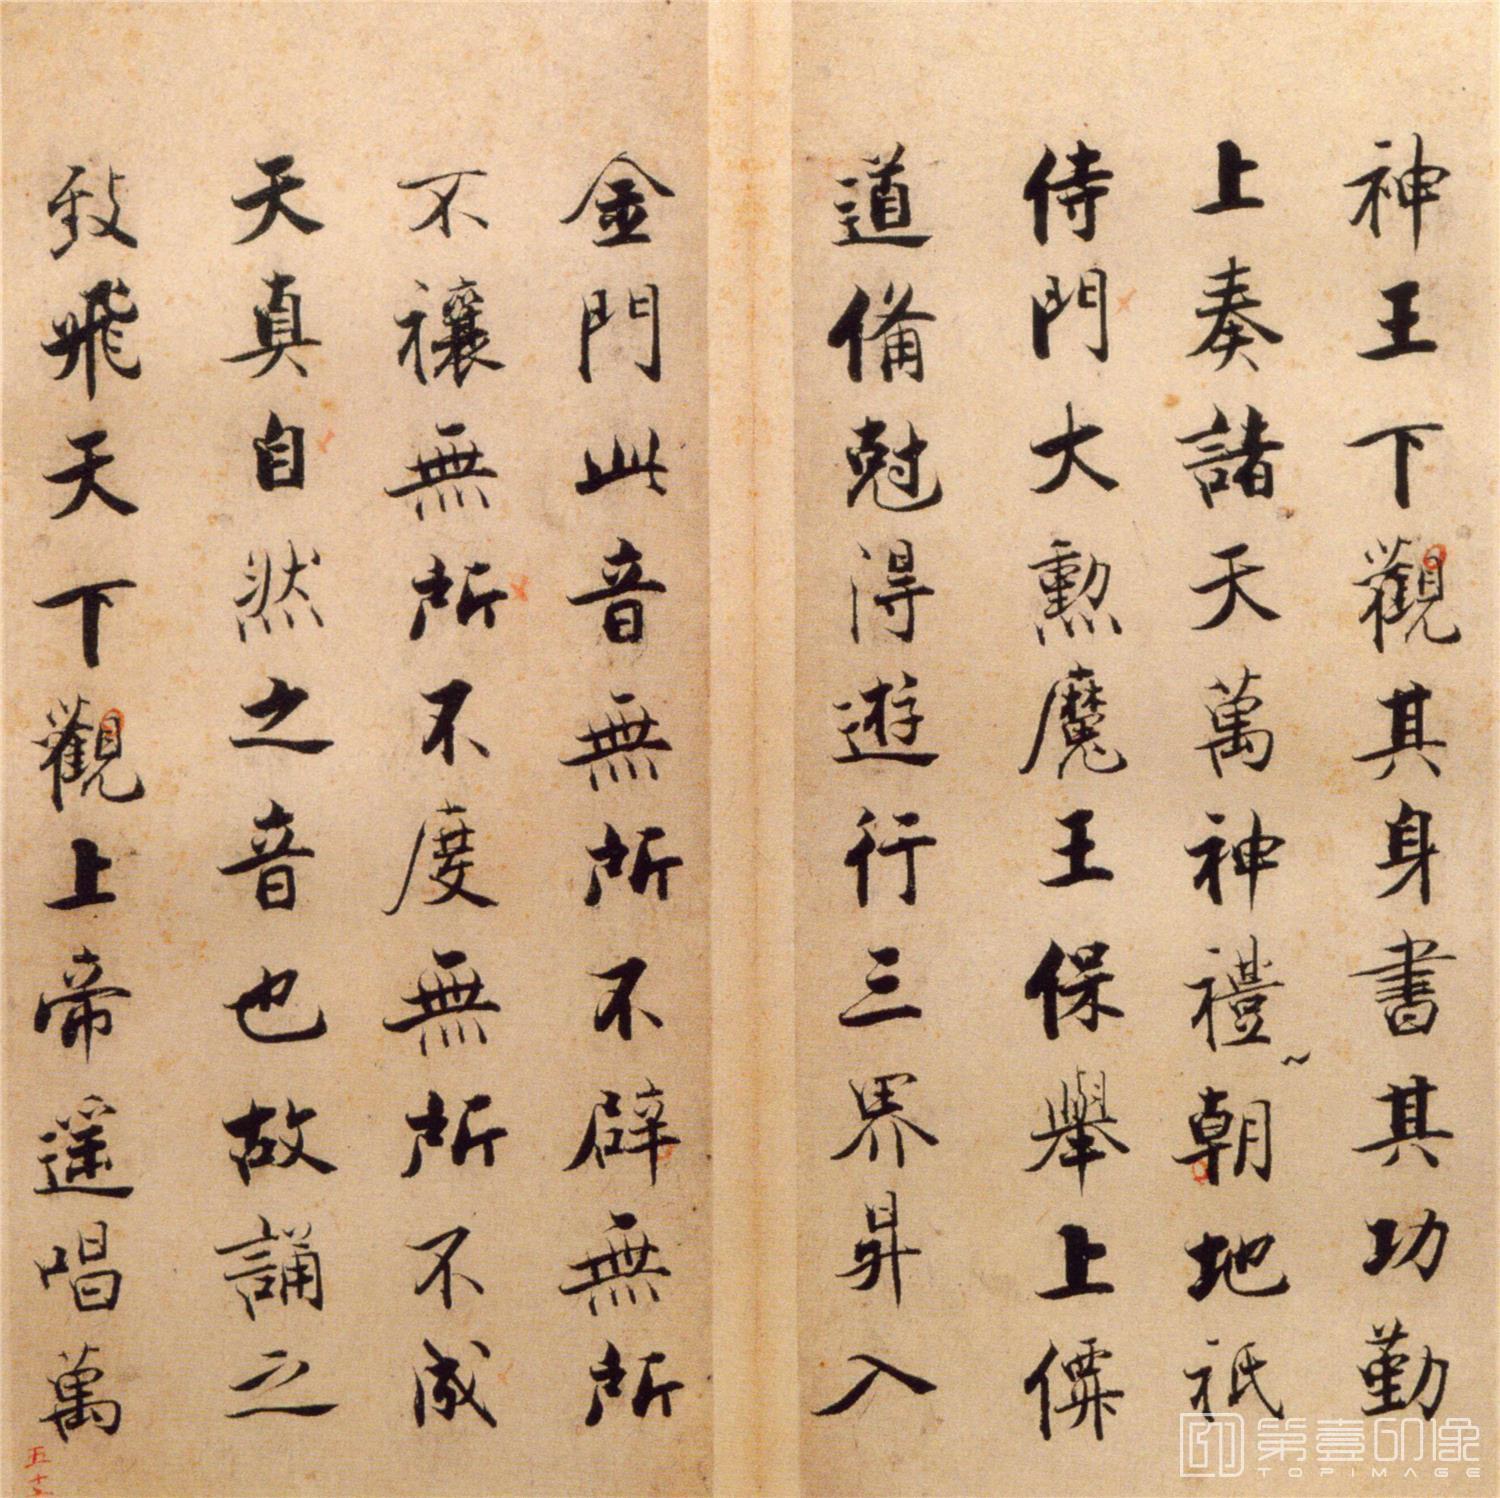 神王下觀其身書其功勤
上奏諸天萬神禮朝地祇
侍門大勳魔王保舉上僊
道備尅得遊行三界昇入
金門此音無所不辟無所
不禳無所不度無所不成
天真自然之音也故誦之
致飛天下觀上帝遥唱萬
五十
第壹印像
TOPIMAGE